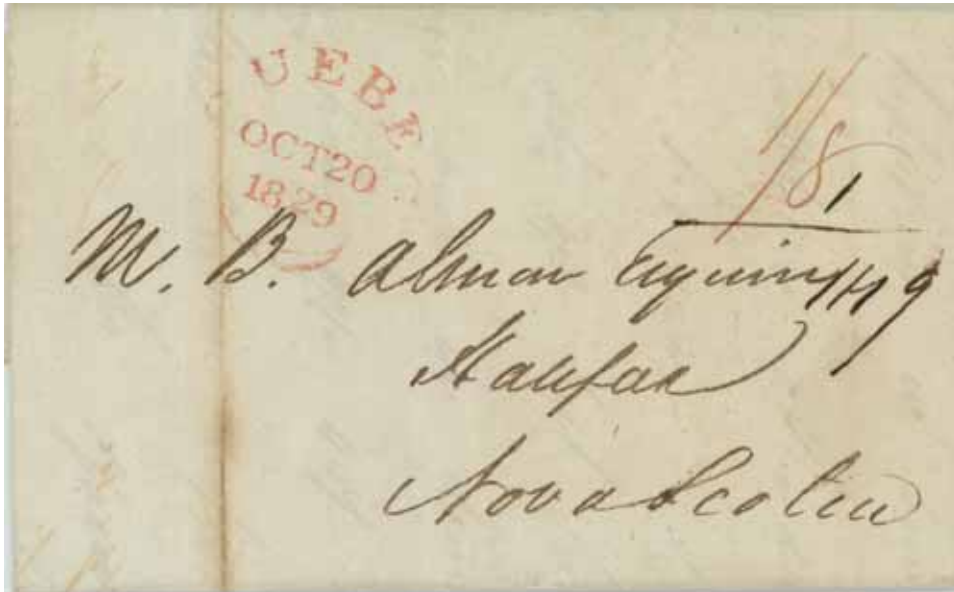 UEBE
OCT 20
1829
1/8
M. B. Almon Esquire
Halifax
Nova Scotia